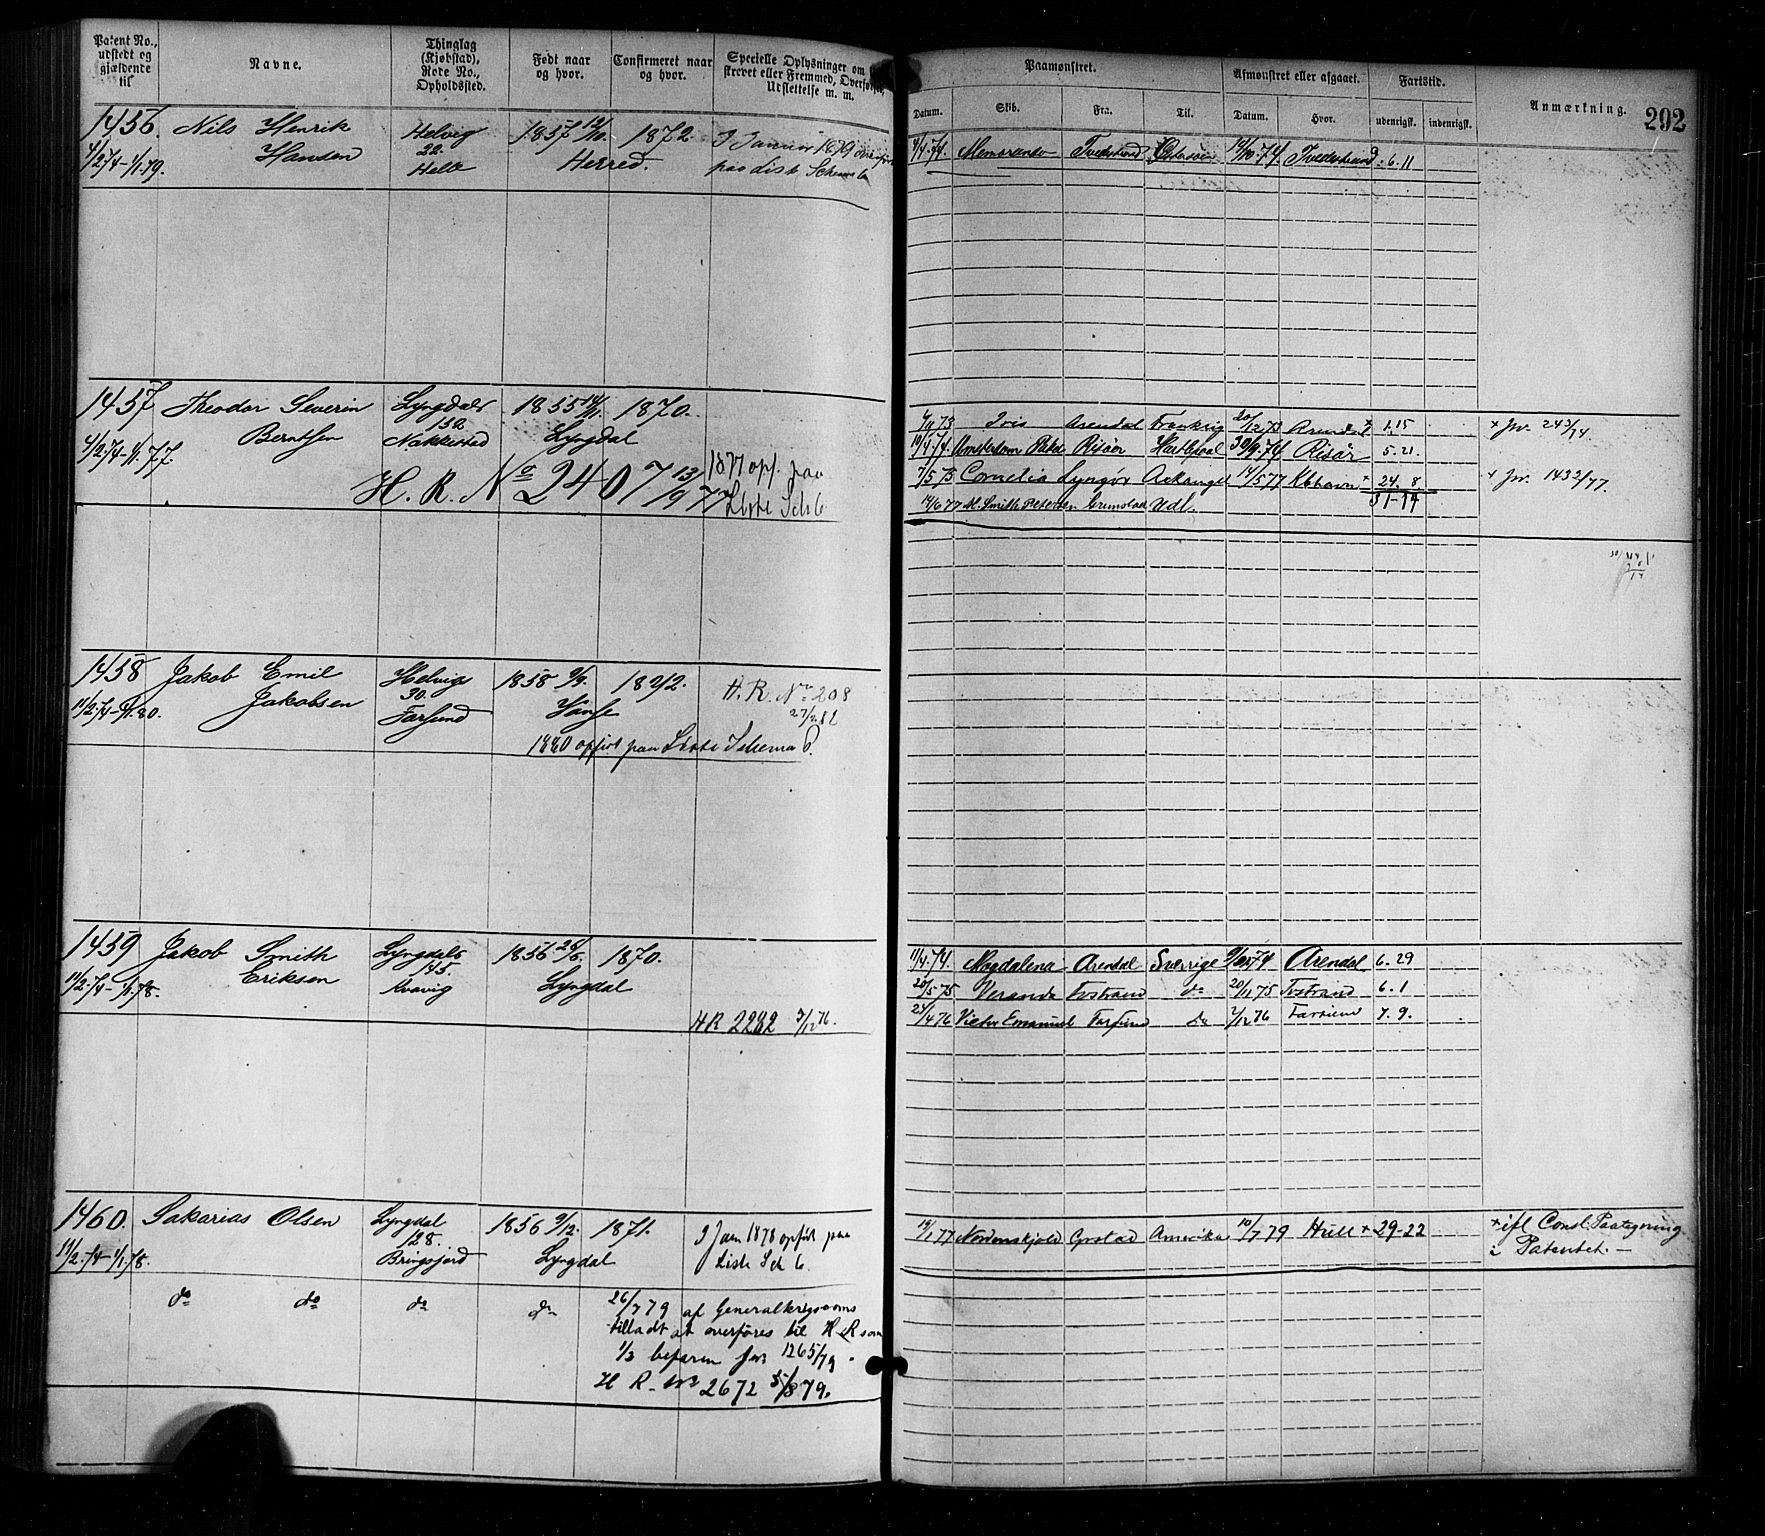 Patent No., udstedt og gjældende til
Navne.
Thinglag (Kjøbstad), Rode No., Opholdssted.
Født naar og hvor.
Confirmeret naar og hvor.
Specielle Oplysninger om
strevet eller Fremmed, Overførsel,
Udslettelse m. m.
Paamønstret.
Afmønstret eller afgaaet.
Fartstid.
Anmærkning.
202
Datum.
Skib.
Fra.
Til.
Datum.
Hvor.
udenrigsk.
indenrigsk.
1456. Nils Henrik Helvig 1857 12/10. 1872. I Januar 1879
4/2 74 - 1/1 79. Hansen 22. Herred. paa liste Schema 6
Helle
4/4 74. Memorando Tvedestrand Østersøen 12/10 74. Tvedestrand 6. 11
1457 Theodor Severin Lyngdals 1855 14/11. 1870.
4/2 74 - 1/1 77. Berntsen 132 Lyngdal
Nakkestad
H. R. No 2407 13/9 77 1877 opf. paa
Liste Sch 6
73 Iris Arendal Frankrig 20/12 73 Arendal x 1. 15 x Jnr. 243/74.
10/4 74. Amsterdam Risør Hartlepool 30/9 74 Risør 5. 21.
7/5 75 Cornelia Lyngør Arkangel 14/5 77 Kbhavn x 24. 8. x Jnr. 1432/77.
31-14
14/6 77 M. Smith Petersen Grimstad Udl.
1458 Jakob Emil Helvigs 1858 9/9. 1872. H. R. No 208
11/2 74 - 1/1 80. Jakobsen 30. Vanse 27/2 82
Farsund
1880 opført paa Liste Schema 6.
1459 Jakob Smith Lyngdals 1856 26/5. 1870.
11/2 74 - 1/1 78. Eriksen 145. Lyngdal
Kvavig
HR 2282 5/12 76.
11/4 74. Magdalena Arendal Sverrige 9/10 74 Arendal 6. 29
20/5 75 Veranda Tvstrand do 20/11 75 Tvstrand 6. 1
23/4 76 Victor Emanuel Farsund do 2/12 76 Farsund 7. 9.
1460. Sakarias Olsen Lyngdal 1856 9/12. 1871. I Jan 1878 opført paa
11/2 74 - 1/1 78. 128. Lyngdal Liste Sch 6.
Bringsjord
14/1 77 Nordenskjold Grstad Amerika 10/7 79 Hull x 29-22 x ifl Consl. Paategning
i Patentet. —
do do do do 26/7 79 af Generalkrigscoms
tilladt at overføres til H R som
1/3 befaren Jnr 1265/79.
H R. No 2672 5/8 79.